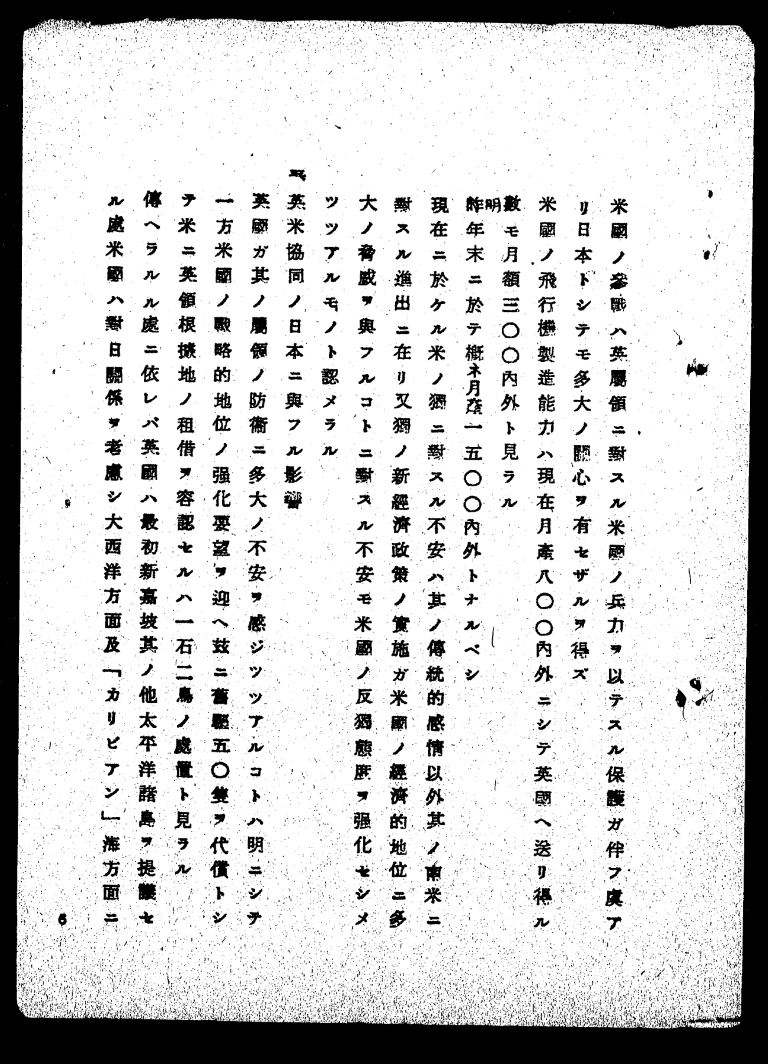 米國ノ參戰ハ英屬領ニ對スル米國ノ兵力ヲ以テスル保護ガ伴フ虞ア
リ日本トシテモ多大ノ關心ヲ有セザルヲ得ズ
米國ノ飛行機製造能力ハ現在月產八〇〇內外ニシテ英國ヘ送リ得ル
數モ月額三〇〇內外ト見ラル
明
昨年末ニ於テ概ネ月產一五〇〇內外トナルベシ
現在ニ於ケル米ノ獨ニ對スル不安ハ其ノ傳統的感情以外其ノ南米ニ
對スル進出ニ在リ又獨ノ新經濟政策ノ實施ガ米國ノ經濟的地位ニ多
大ノ脅威ヲ與フルコトニ對スル不安モ米國ノ反獨態度ヲ强化セシメ
ツツアルモノト認メラル
英米協同ノ日本ニ與フル影響
英國ガ其ノ屬領ノ防衞ニ多大ノ不安ヲ感ジツツアルコトハ明ニシテ
一方米國ノ戰略的地位ノ强化要望ヲ迎ヘ玆ニ舊驅五〇隻ヲ代償トシ
テ米ニ英領根據地ノ租借ヲ容認セルハ一石二鳥ノ處置ト見ラル
傳ヘラルル處ニ依レバ英國ハ最初新嘉坡其ノ他太平洋諸島ヲ提議セ
ル處米國ハ對日關係ヲ考慮シ大西洋方面及「カリビアン」海方面ニ
6